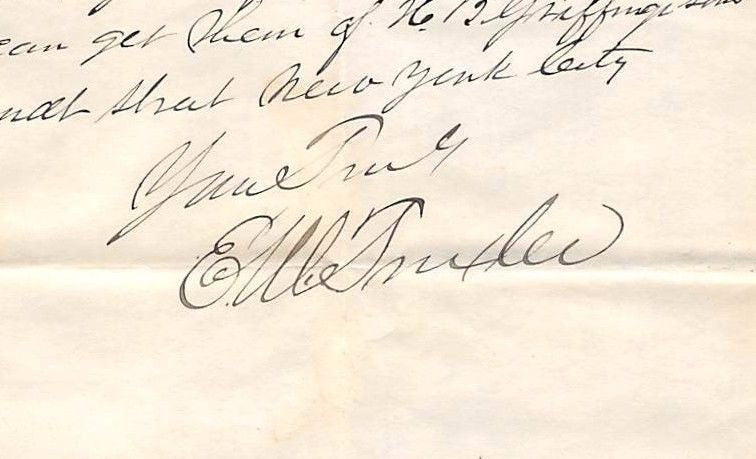 can get them of H. B. Griffing & son
street New York City
Yours Truly
E. W. Truxler